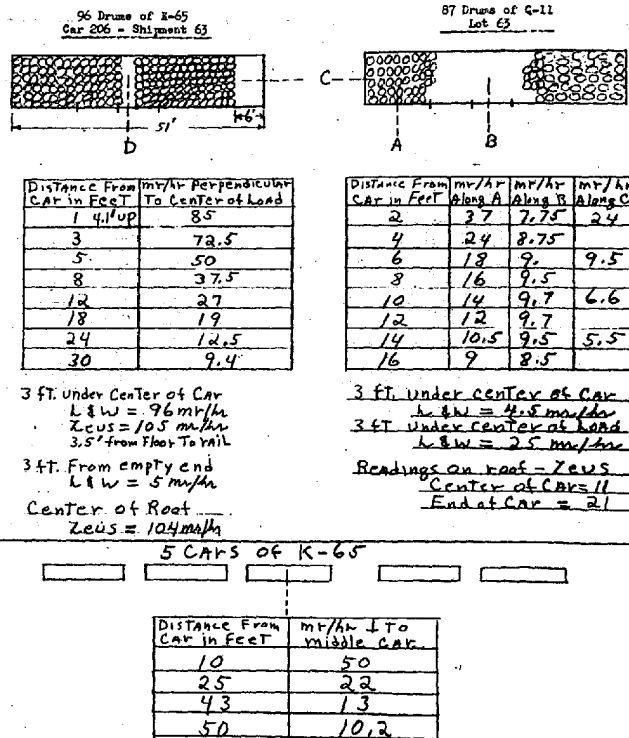 96 Drums of K-65
Car 206 - Shipment 63
51'
6'
D
87 Drums of G-11
Lot 63
C
A
B
Distance From Car in Feet | mr/hr Perpendicular To Center of Load
1 4.1' up | 85
3 | 72.5
5 | 50
8 | 37.5
12 | 27
18 | 19
24 | 12.5
30 | 9.4
3 ft. under Center of Car
L & W = 96 mr/hr
Zeus = 105 mr/hr
3.5' from Floor To rail
3 ft. From empty end
L & W = 5 mr/hr
Center of Roof
Zeus = 104 mr/hr
Distance From Car in Feet | mr/hr Along A | mr/hr Along B | mr/hr Along C
2 | 37 | 7.75 | 24
4 | 24 | 8.75
6 | 18 | 9. | 9.5
8 | 16 | 9.5
10 | 14 | 9.7 | 6.6
12 | 12 | 9.7
14 | 10.5 | 9.5 | 5.5
16 | 9 | 8.5
3 ft. under center of Car
L & W = 4.5 mr/hr
3 ft under center of Load
L & W = 25 mr/hr
Readings on roof - Zeus
Center of Car = 11
End of Car = 21
5 Cars of K-65
Distance From Car in Feet | mr/hr ⊥ To middle car
10 | 50
25 | 22
43 | 13
50 | 10.2